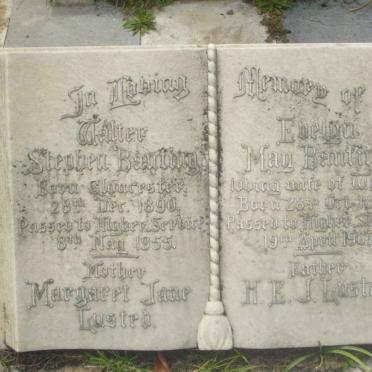 In Loving
Walter
Stephen Banting
Born Gloucester,
28th Dec. 1890,
Passed to Higher Service
8th May 1955.
Mother
Margaret Jane
Lusted.
Memory of
Evelyn
May
loving wife of
Born 28th Oct.
Passed to Higher
19th April
Father
H. E. J.